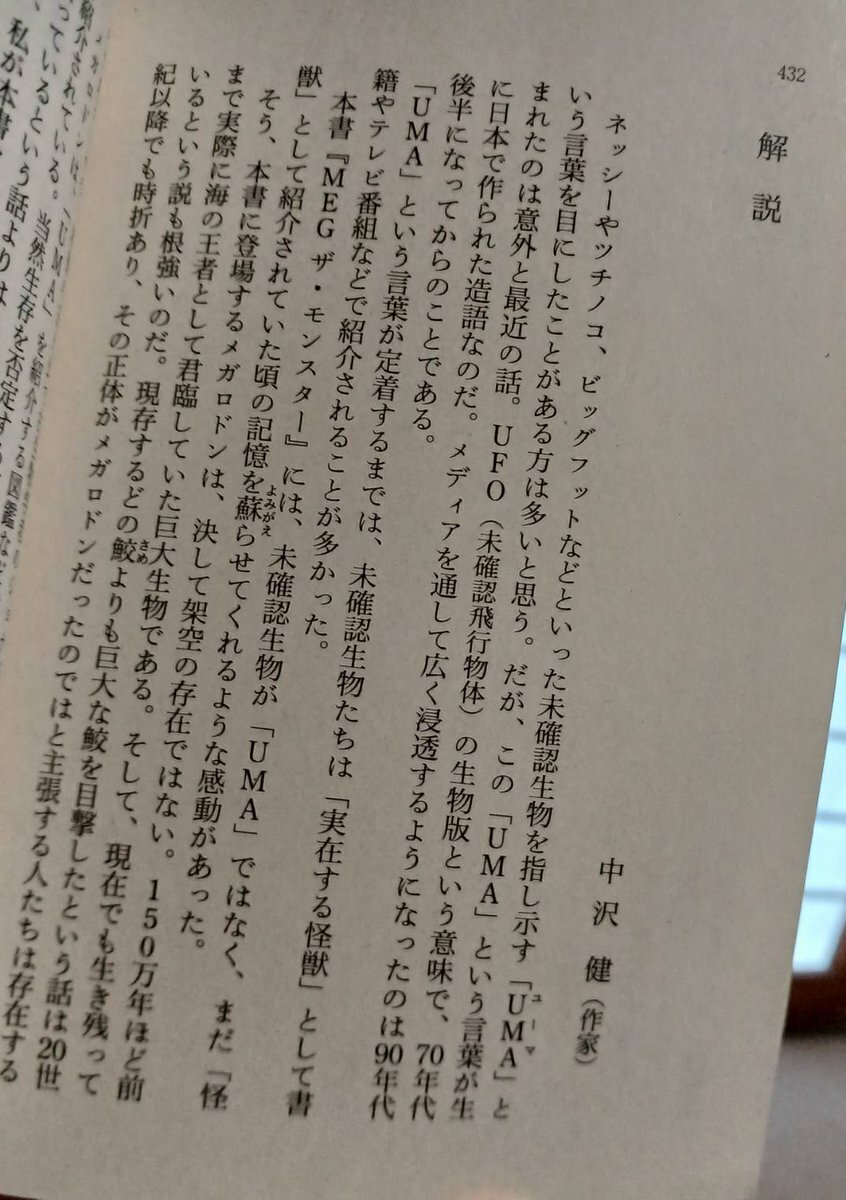 432
解説
中沢 健(作家)
ネッシーやツチノコ、ビッグフットなどといった未確認生物を指し示す「UMA」と
ユーマ
いう言葉を目にしたことがある方は多いと思う。だが、この「UMA」という言葉が生
まれたのは意外と最近の話。UFO(未確認飛行物体)の生物版という意味で、70年代
に日本で作られた造語なのだ。メディアを通して広く浸透するようになったのは90年代
後半になってからのことである。
「UMA」という言葉が定着するまでは、未確認生物たちは「実在する怪獣」として書
籍やテレビ番組などで紹介されることが多かった。
本書『MEG ザ・モンスター』には、未確認生物が「UMA」ではなく、まだ「怪
獣」として紹介されていた頃の記憶を蘇らせてくれるような感動があった。
よみがえ
そう、本書に登場するメガロドンは、決して架空の存在ではない。150万年ほど前
まで実際に海の王者として君臨していた巨大生物である。そして、現在でも生き残って
いるという説も根強いのだ。現存するどの鮫よりも巨大な鮫を目撃したという話は20世
さめ
紀以降でも時折あり、その正体がメガロドンだったのではと主張する人たちは存在する